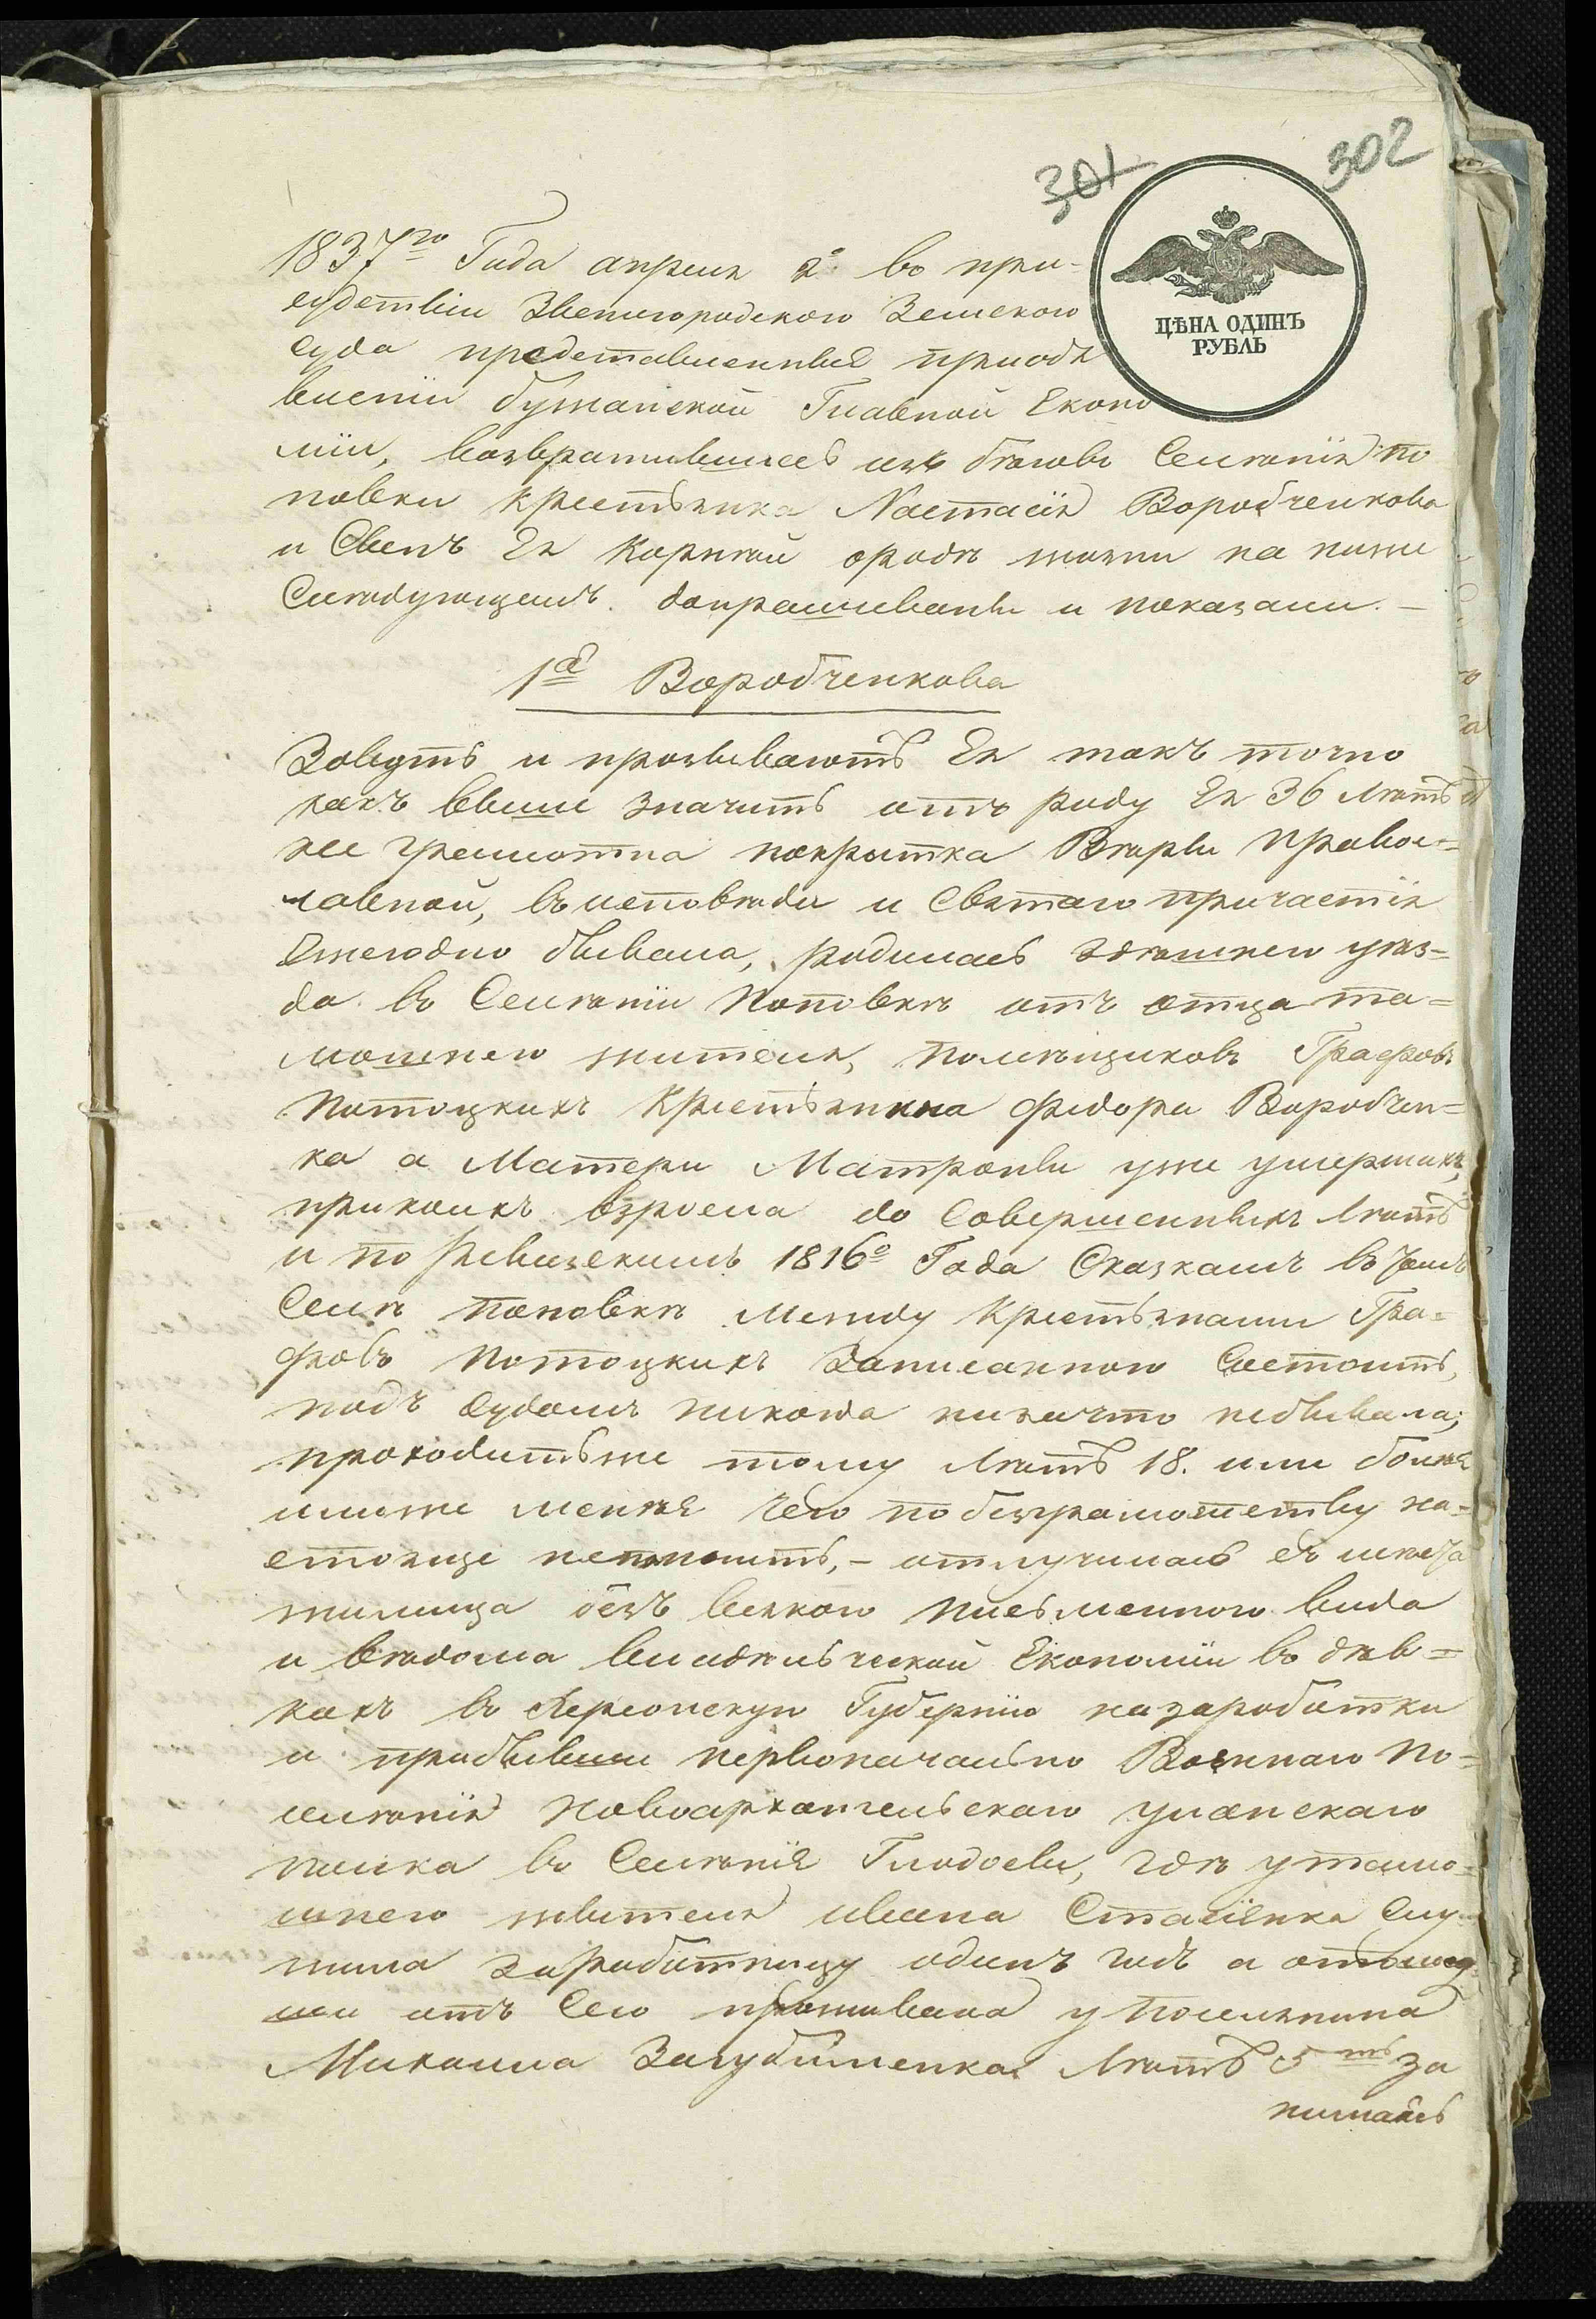 301 302
ЦѢНА ОДИНЪ
РУБЛЬ
1837го Года апреля 2 во при-
судствіи Звенигородского Земского
Суда представленныя приодѣ
висти бужанской Главной Еконо
міи, возвратившеесь изъ бѣговъ Селенія по
повки крестьянка Настасія Воробченкова
и Сынъ Ея Корнѣй о родѣ жизни на ниже
Слѣдующемъ допрашиваны и показали. —
1я Воробченкова
Зовутъ и прозываютъ Ея такъ точно
какъ выше значитъ отъ роду Ея 36 лѣтъ
не грамотна покрытка Вѣры Правос-
лавной, въ исповѣди и Святаго причастія
Ежегодно бывала, родилась здѣшнего уѣз-
да во Селеніи Поповкѣ отъ отца та-
мошнего жителя, помѣщиковъ Графовъ
Потоцкихъ Крестьянина Федора Воробчен-
ка а Матери Матроны уже умершихъ,
при коихъ взросла до Совершенныхъ лѣтъ
и по Ревизскимъ 1816о Года Сказкамъ въ томъ
Селѣ Поповкѣ между Крестьянами Гра-
фовъ Потоцкихъ Записанною Состоитъ,
подъ Судомъ никогда низачто небывала;
проходитъже тому лѣтъ 18. или болѣя
илиже менѣя чего по безграмотству на-
стояще непомнитъ, — отлучилась съ мѣста
жилища безъ всякого письменного вида
и вѣдома владѣльческой Економіи въ дѣв-
кахъ во Херсонскую Губернію назаработки
и прибывши первоначально Военнаго По-
селенія Новоархангельскаго уланскаго
полка во Селенія Глодосы, гдѣ у тамо-
шнего жителя ивана Стасіенка Слу-
жила заработницу одинъ годъ а отошед-
ши отъ Сего проживала у поселянина
Михаила Загубиленка лѣтъ 5ть за
нималась